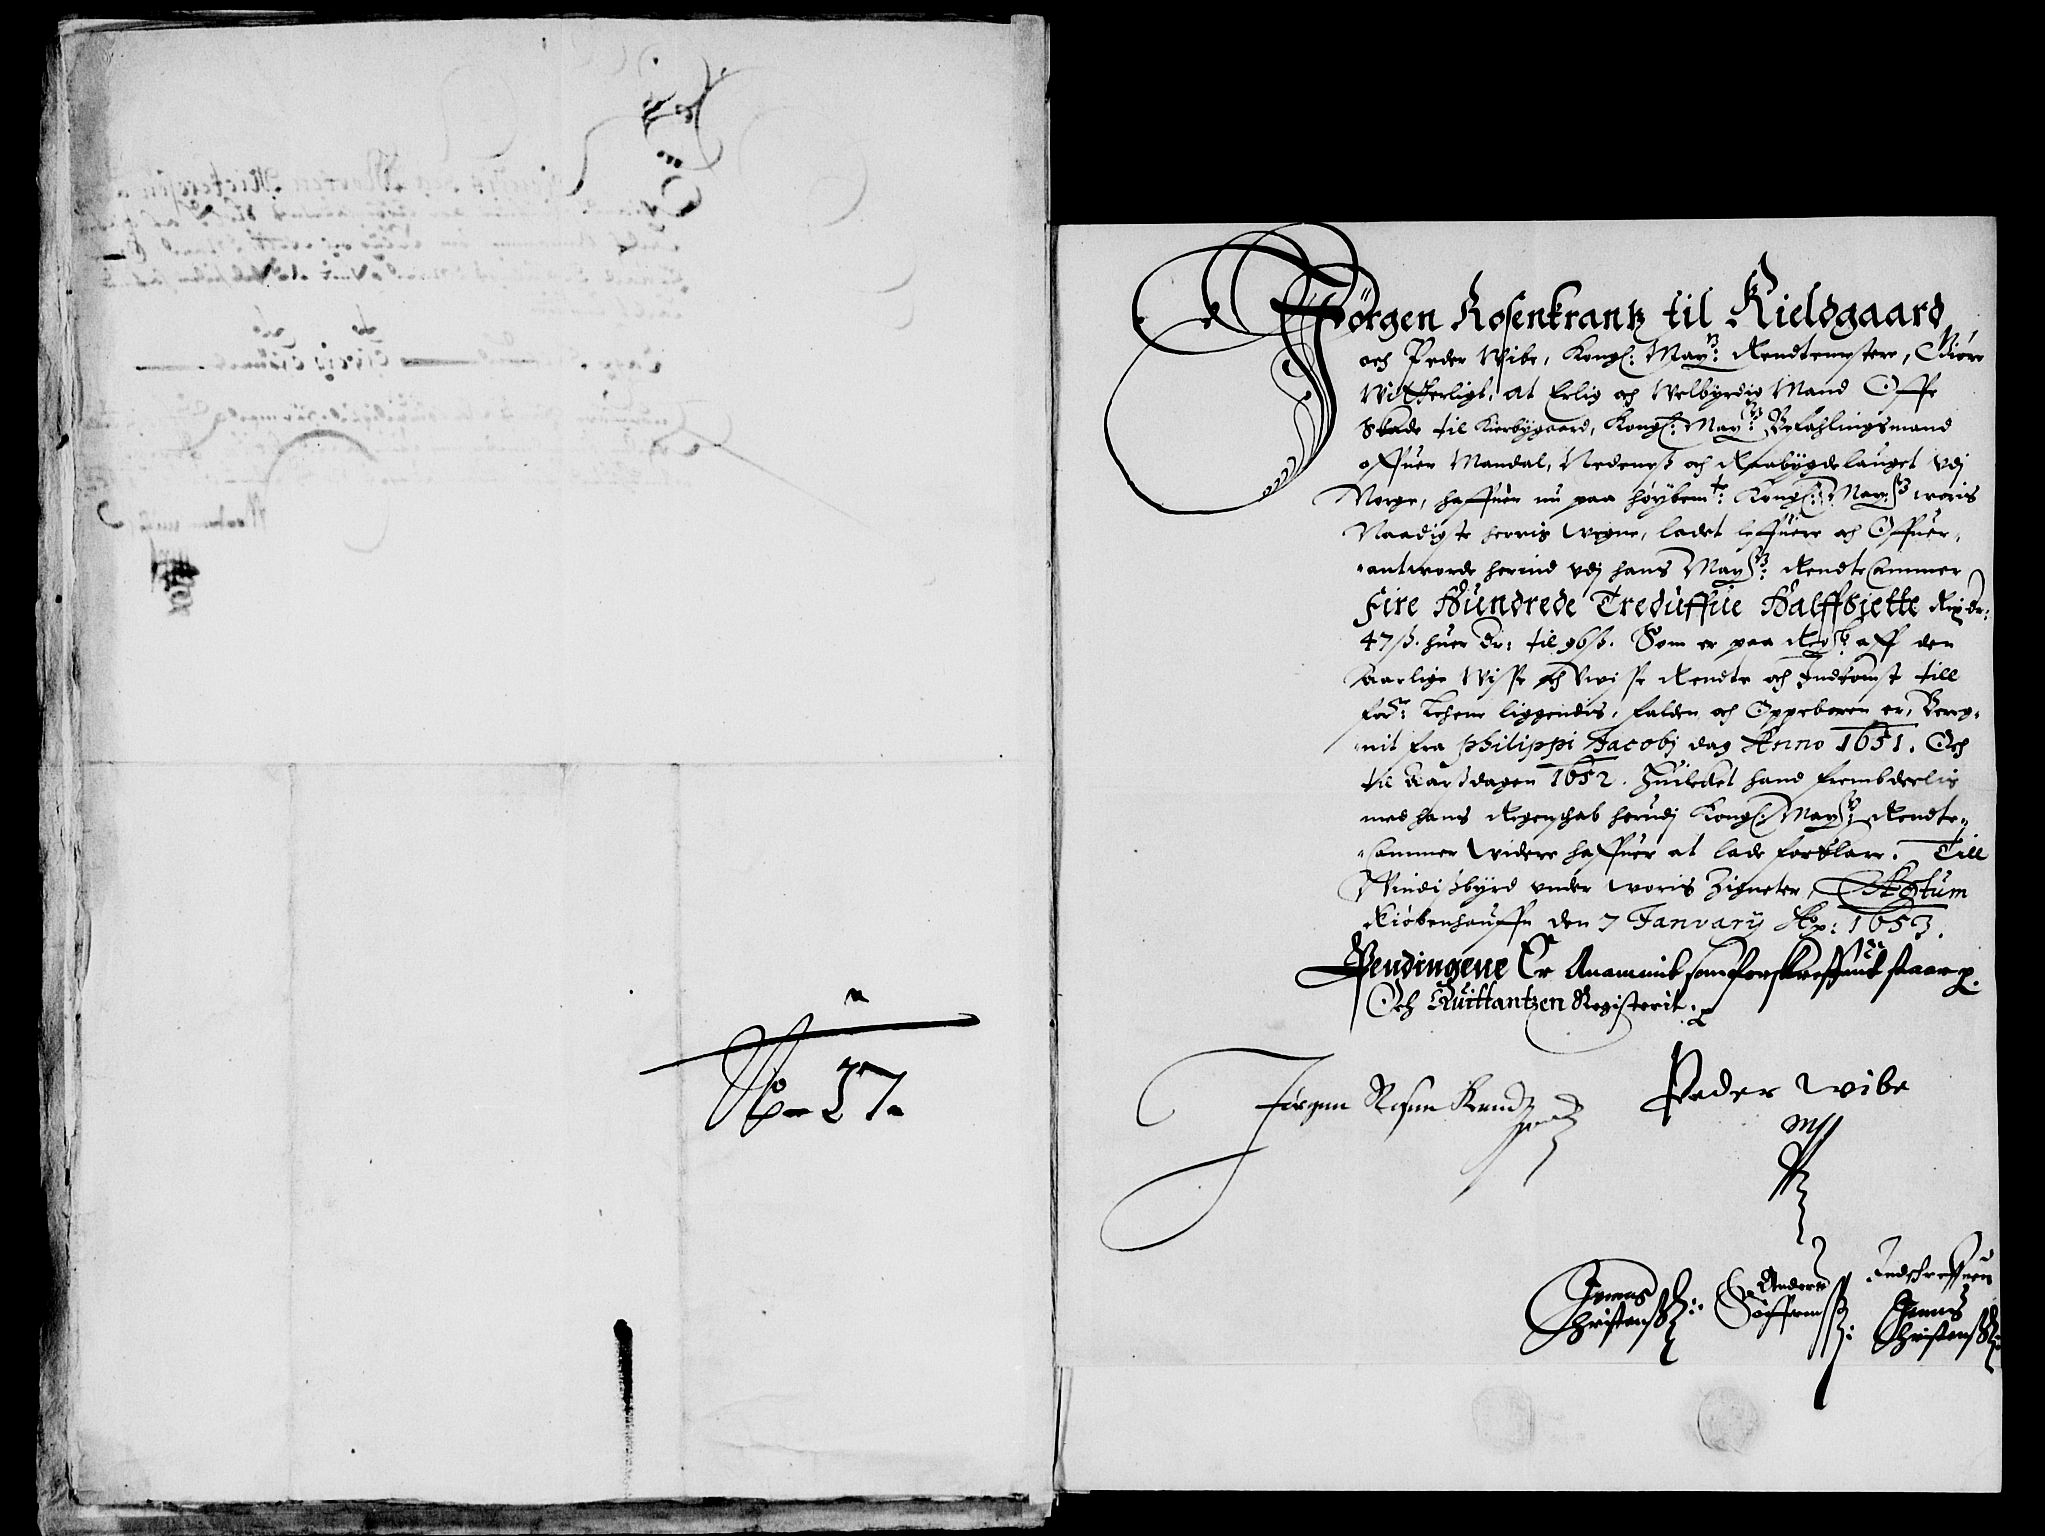 No 27
Jörgen Rosenkrantz til Kieldgaard
och Peder Wibe, Kongl: Mayts: Rendtemestere, Giöre
Witterligt, at Erlig och Welbyrdig Mand Offe
Skade til Kierbygaard, Kongl: Mayts: Befahlingsmand
offuer Mandal, Nedeneß och Raabygdelauget vdj
Norge, haffuer nu paa höybemte: Kongl: Mayts: woris
Naadigste herris wegne, ladet leffuere och Offuer,
antworde herind vdj hans Mayts: Rendte Cammer
Fire Hundrede Treduffue Halffsiette Rixdr:
47 ß. huer Dr: til 96 ß. Som er paa Regsk: aff den
Aarlige Wisse och Vwisse Rendte och Indkomst till
fore: Lehene liggendis, falden och Oppebaren er, Bereg-
nit fra Philippi Jacobj dag Anno 1651. Och
til Aarsdagen 1652. Huilcket hand frembdeelis
med hans Regenschab herudj Kongl: Mayts: Rendte-
Cammer widere haffuer at lade forklare. Till
Windißbyrd vnder woris Zigneter, Actum
Kiöbenhauffn den 7 January Ao: 1653.
Pendingene Er Anammit som forskreffuit staar
Och Quittantzen Registerit.
Jörgen Rosen Krandtz
Peder Wibe
Mpp
Jenns Christenß:
Anders Söffrenß:
Indschreffuen
Jenns Christenß